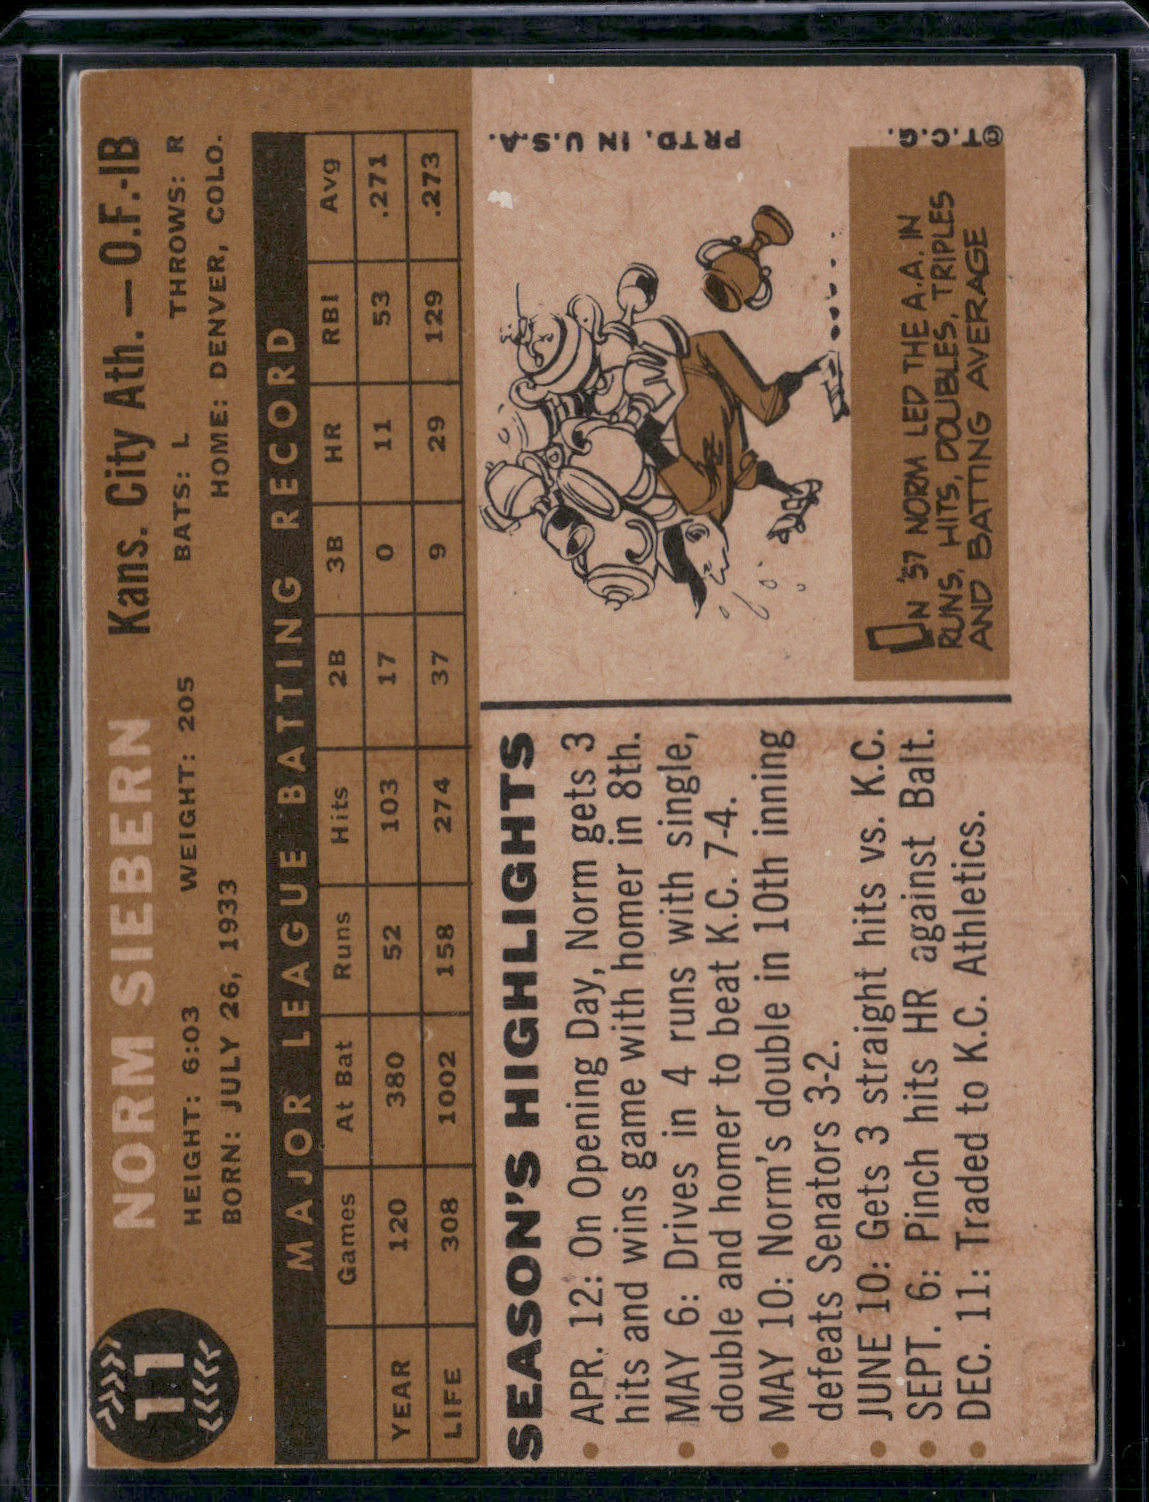 11
NORM SIEBERN Kans. City Ath.—O.F.-1B
HEIGHT: 6:03 WEIGHT: 205 BATS: L THROWS: R
BORN: JULY 26, 1933 HOME: DENVER, COLO.
MAJOR LEAGUE BATTING RECORD
Games At Bat Runs Hits 2B 3B HR RBI Avg
YEAR 120 380 52 103 17 0 11 53 .271
LIFE 308 1002 158 274 37 9 29 129 .273
SEASON'S HIGHLIGHTS
• APR. 12: On Opening Day, Norm gets 3
hits and wins game with homer in 8th.
• MAY 6: Drives in 4 runs with single,
double and homer to beat K.C. 7-4.
• MAY 10: Norm's double in 10th inning
defeats Senators 3-2.
• JUNE 10: Gets 3 straight hits vs. K.C.
• SEPT. 6: Pinch hits HR against Balt.
• DEC. 11: Traded to K.C. Athletics.
IN '57 NORM LED THE A.A. IN
RUNS, HITS, DOUBLES, TRIPLES
AND BATTING AVERAGE
© T.C.G. PRTD. IN U.S.A.